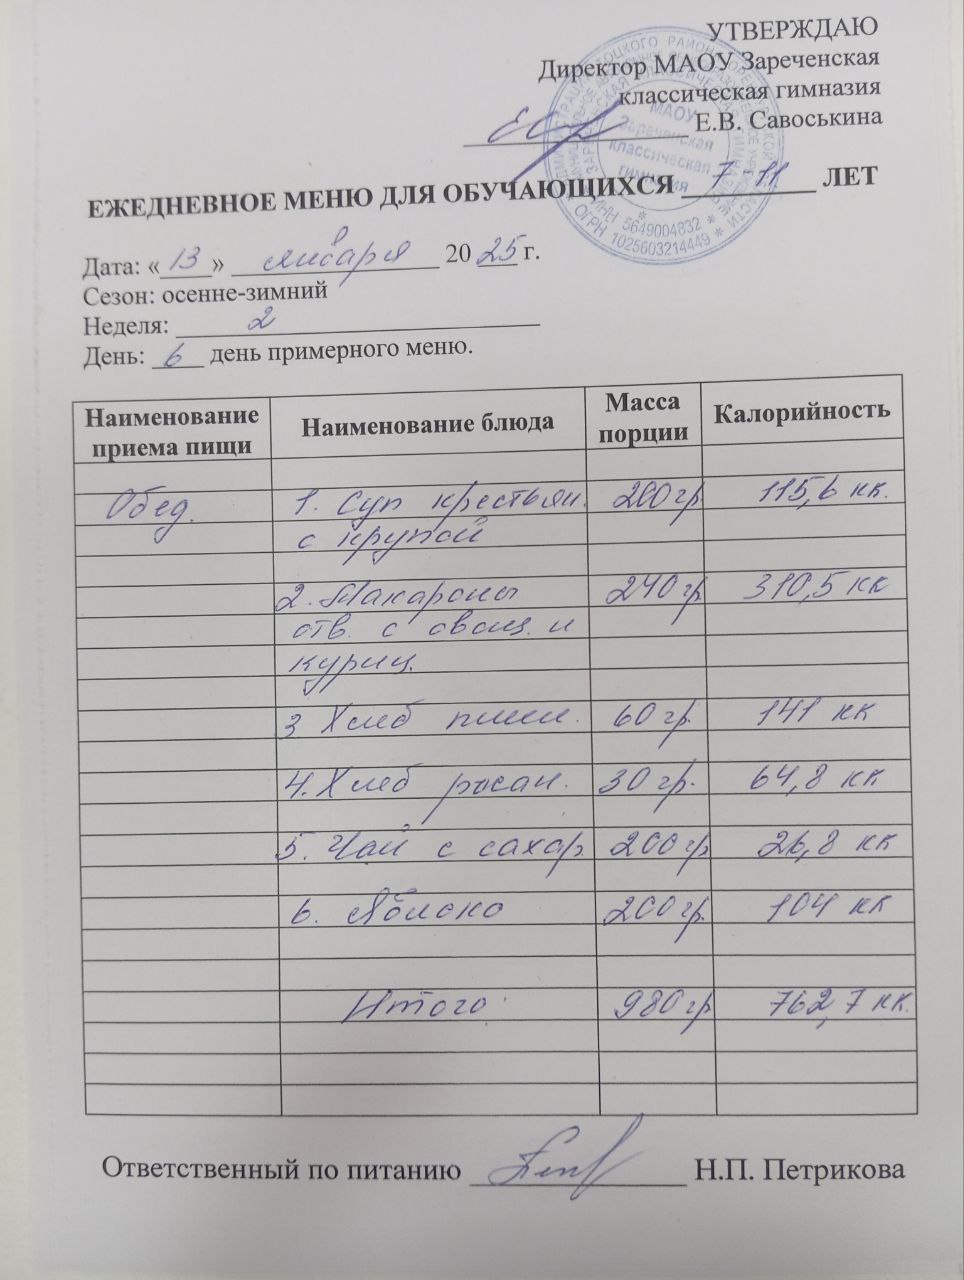 УТВЕРЖДАЮ
Директор МАОУ Зареченская
классическая гимназия
Е.В. Савоськина
МАОУ
Зареченская
классическая
гимназия
ИНН 5649004832 *
ОГРН 1025603214449 *
ЕЖЕДНЕВНОЕ МЕНЮ ДЛЯ ОБУЧАЮЩИХСЯ 7-11 ЛЕТ
Дата: «13» января 2025 г.
Сезон: осенне-зимний
Неделя: 2
День: 6 день примерного меню.
Наименование приема пищи Наименование блюда Масса порции Калорийность
Обед. 1. Суп крестьян. 200 гр 115,6 кк.
с крупой
2. Макароны 240 гр 310,5 кк
отв. с овощ. и
куриц.
3 Хлеб пшен. 60 гр. 141 кк
4. Хлеб ржан. 30 гр. 64,8 кк
5. Чай с сахар 200 гр 26,8 кк
6. Яблоко 200 гр. 104 кк
Итого 980 гр 762,7 кк.
Ответственный по питанию Н.П. Петрикова